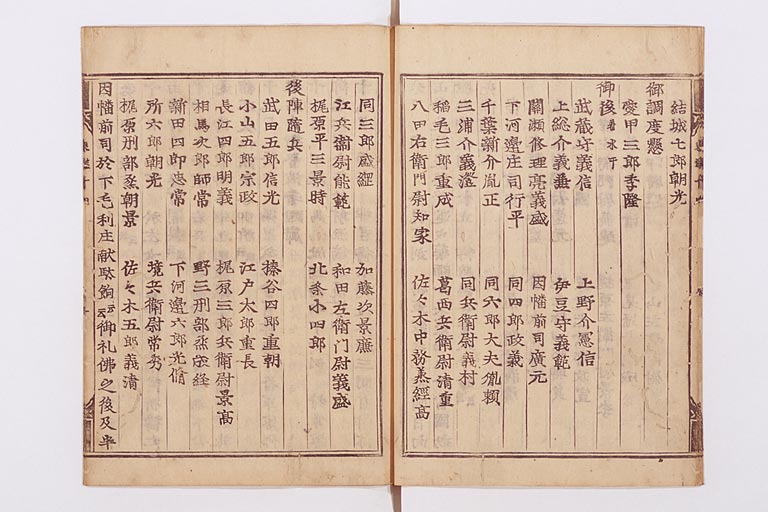 結城七郎朝光
御調度懸
愛甲三郎季隆
御後 着水干
武蔵守義信 上野介憲信
上総介義兼 伊豆守義範
関瀬修理亮義盛 因幡前司廣元
下河邊庄司行平 同四郎政義
千葉新介胤正 同六郎大夫胤頼
三浦介義澄 同兵衛尉義村
稲毛三郎重成 葛西兵衛尉清重
八田右衛門尉知家 佐々木中務丞經高
同三郎盛經 加藤次景廉
江兵衛尉能範 和田左衛門尉義盛
梶原平三景時 北条小四郎
後陣隨兵
武田五郎信光 榛谷四郎重朝
小山五郎宗政 江戸太郎重長
長江四郎明義 梶原三郎兵衛尉景高
相馬次郎師常 野三刑部丞成経
新田四郎忠常 下河邊六郎光脩
所六郎朝光 境兵衛尉常秀
梶原刑部丞朝景 佐々木五郎義清
因幡前司於下毛利庄献駄餉云云御礼佛之後及半